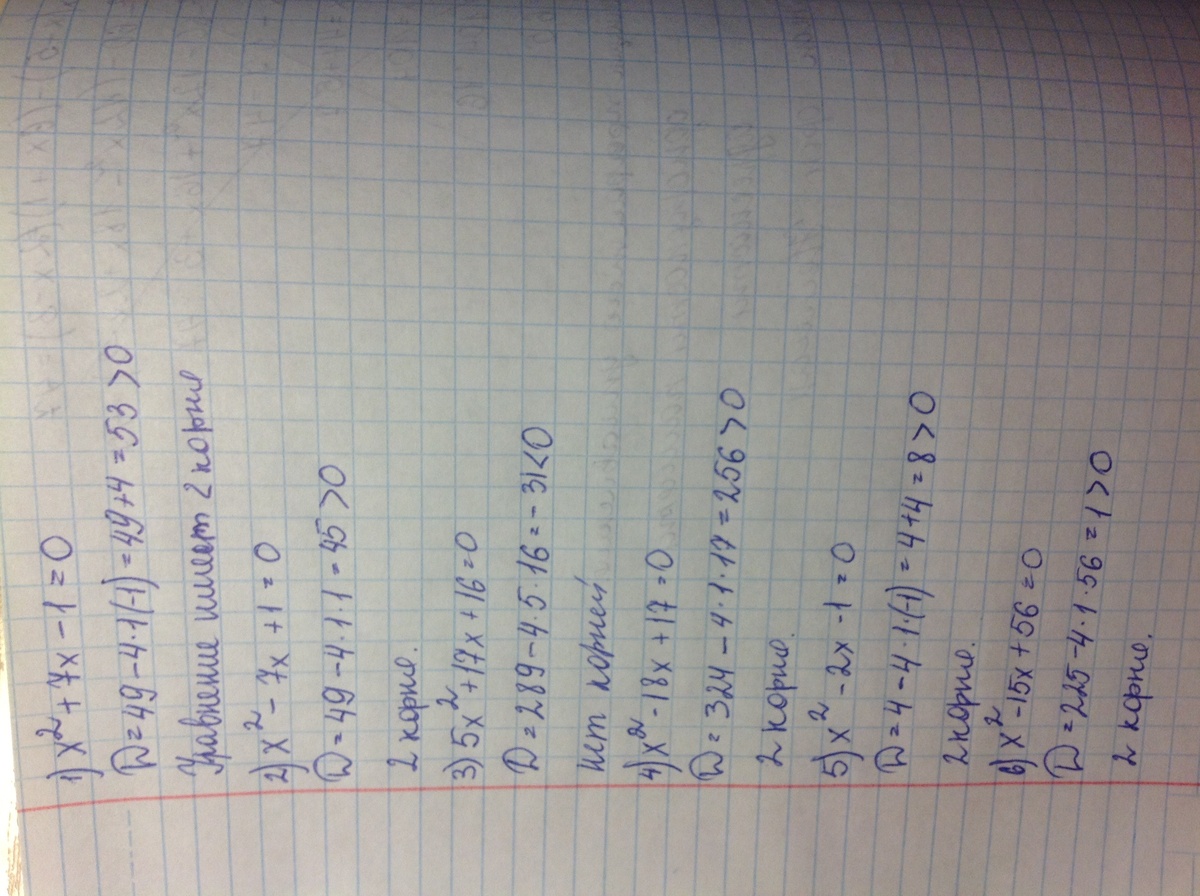 1) x² + 7x - 1 = 0
D = 49 - 4·1·(-1) = 49 + 4 = 53 > 0
Уравнение имеет 2 корня
2) x² - 7x + 1 = 0
D = 49 - 4·1·1 = 45 > 0
2 корня.
3) 5x² + 17x + 16 = 0
D = 289 - 4·5·16 = -31 < 0
Нет корней
4) x² - 18x + 17 = 0
D = 324 - 4·1·17 = 256 > 0
2 корня.
5) x² - 2x - 1 = 0
D = 4 - 4·1·(-1) = 4 + 4 = 8 > 0
2 корня.
6) x² - 15x + 56 = 0
D = 225 - 4·1·56 = 1 > 0
2 корня.